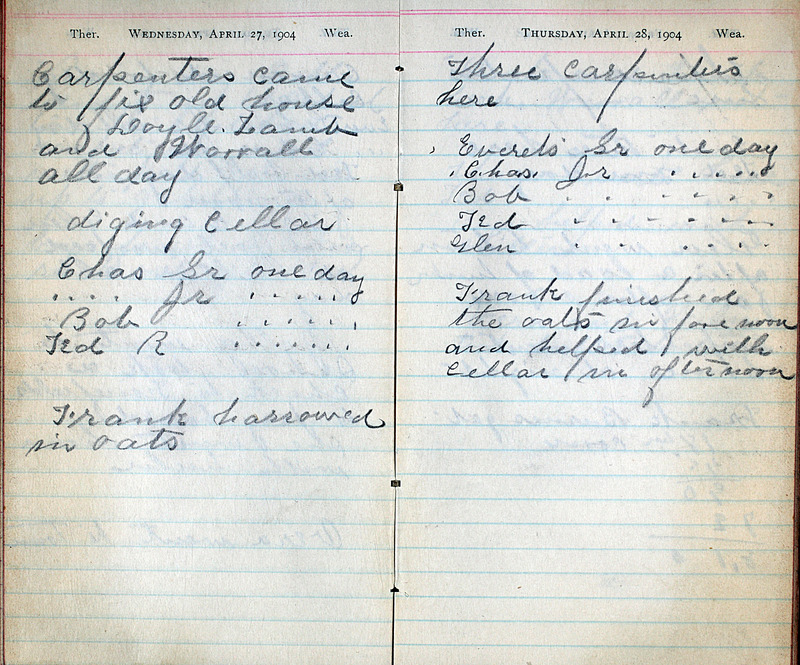 Ther. WEDNESDAY, APRIL 27, 1904 Wea.
Carpenters came
to fix old house
) Doyle. Lamb
and Worrall
all day
diging cellar
Chas Sr one day
. . . . Jr . . . . . .
Bob . . . . . .
Ted R . . . . . . .
Frank harrowed
in oats
Ther. THURSDAY, APRIL 28, 1904 Wea.
Three carpenters
here
Everets Sr one day
Chas. Jr . . . . . .
Bob . . . . . .
Ted . . . . . .
Glen . . . . . .
Frank finished
the oats in fore noon
and helped with
cellar in after noon